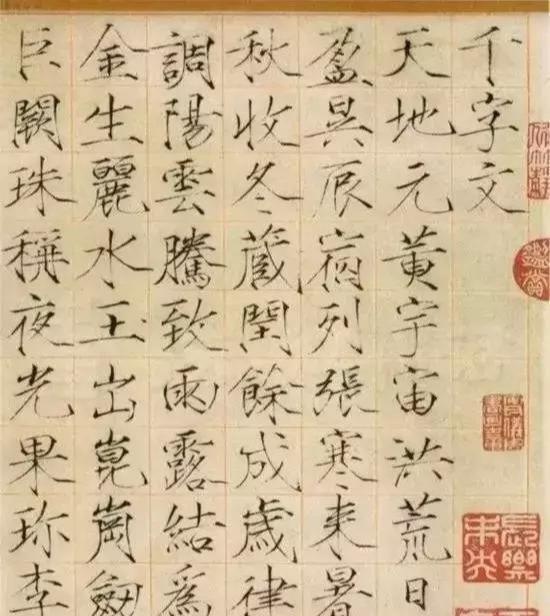 千字文
天地元黄宇宙洪荒日
盈昃辰宿列張寒来暑
秋收冬蔵閏餘成歲律
調陽雲騰致雨露結為
金生麗水玉出崑崗劒
巨闕珠稱夜光果珍李